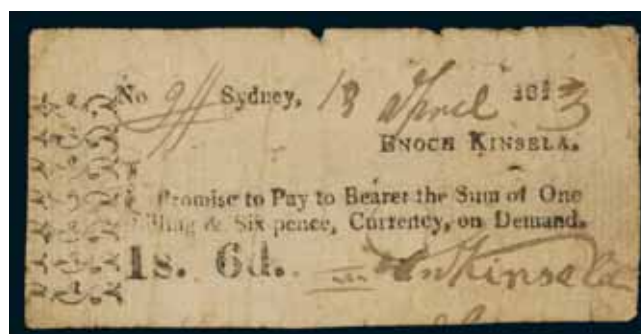 No Sydney, 18 April 1813
ENOCH KINSELA.
I Promise to Pay to Bearer the Sum of One
Shilling & Six pence, Currency, on Demand.
1s. 6d. Kinsela